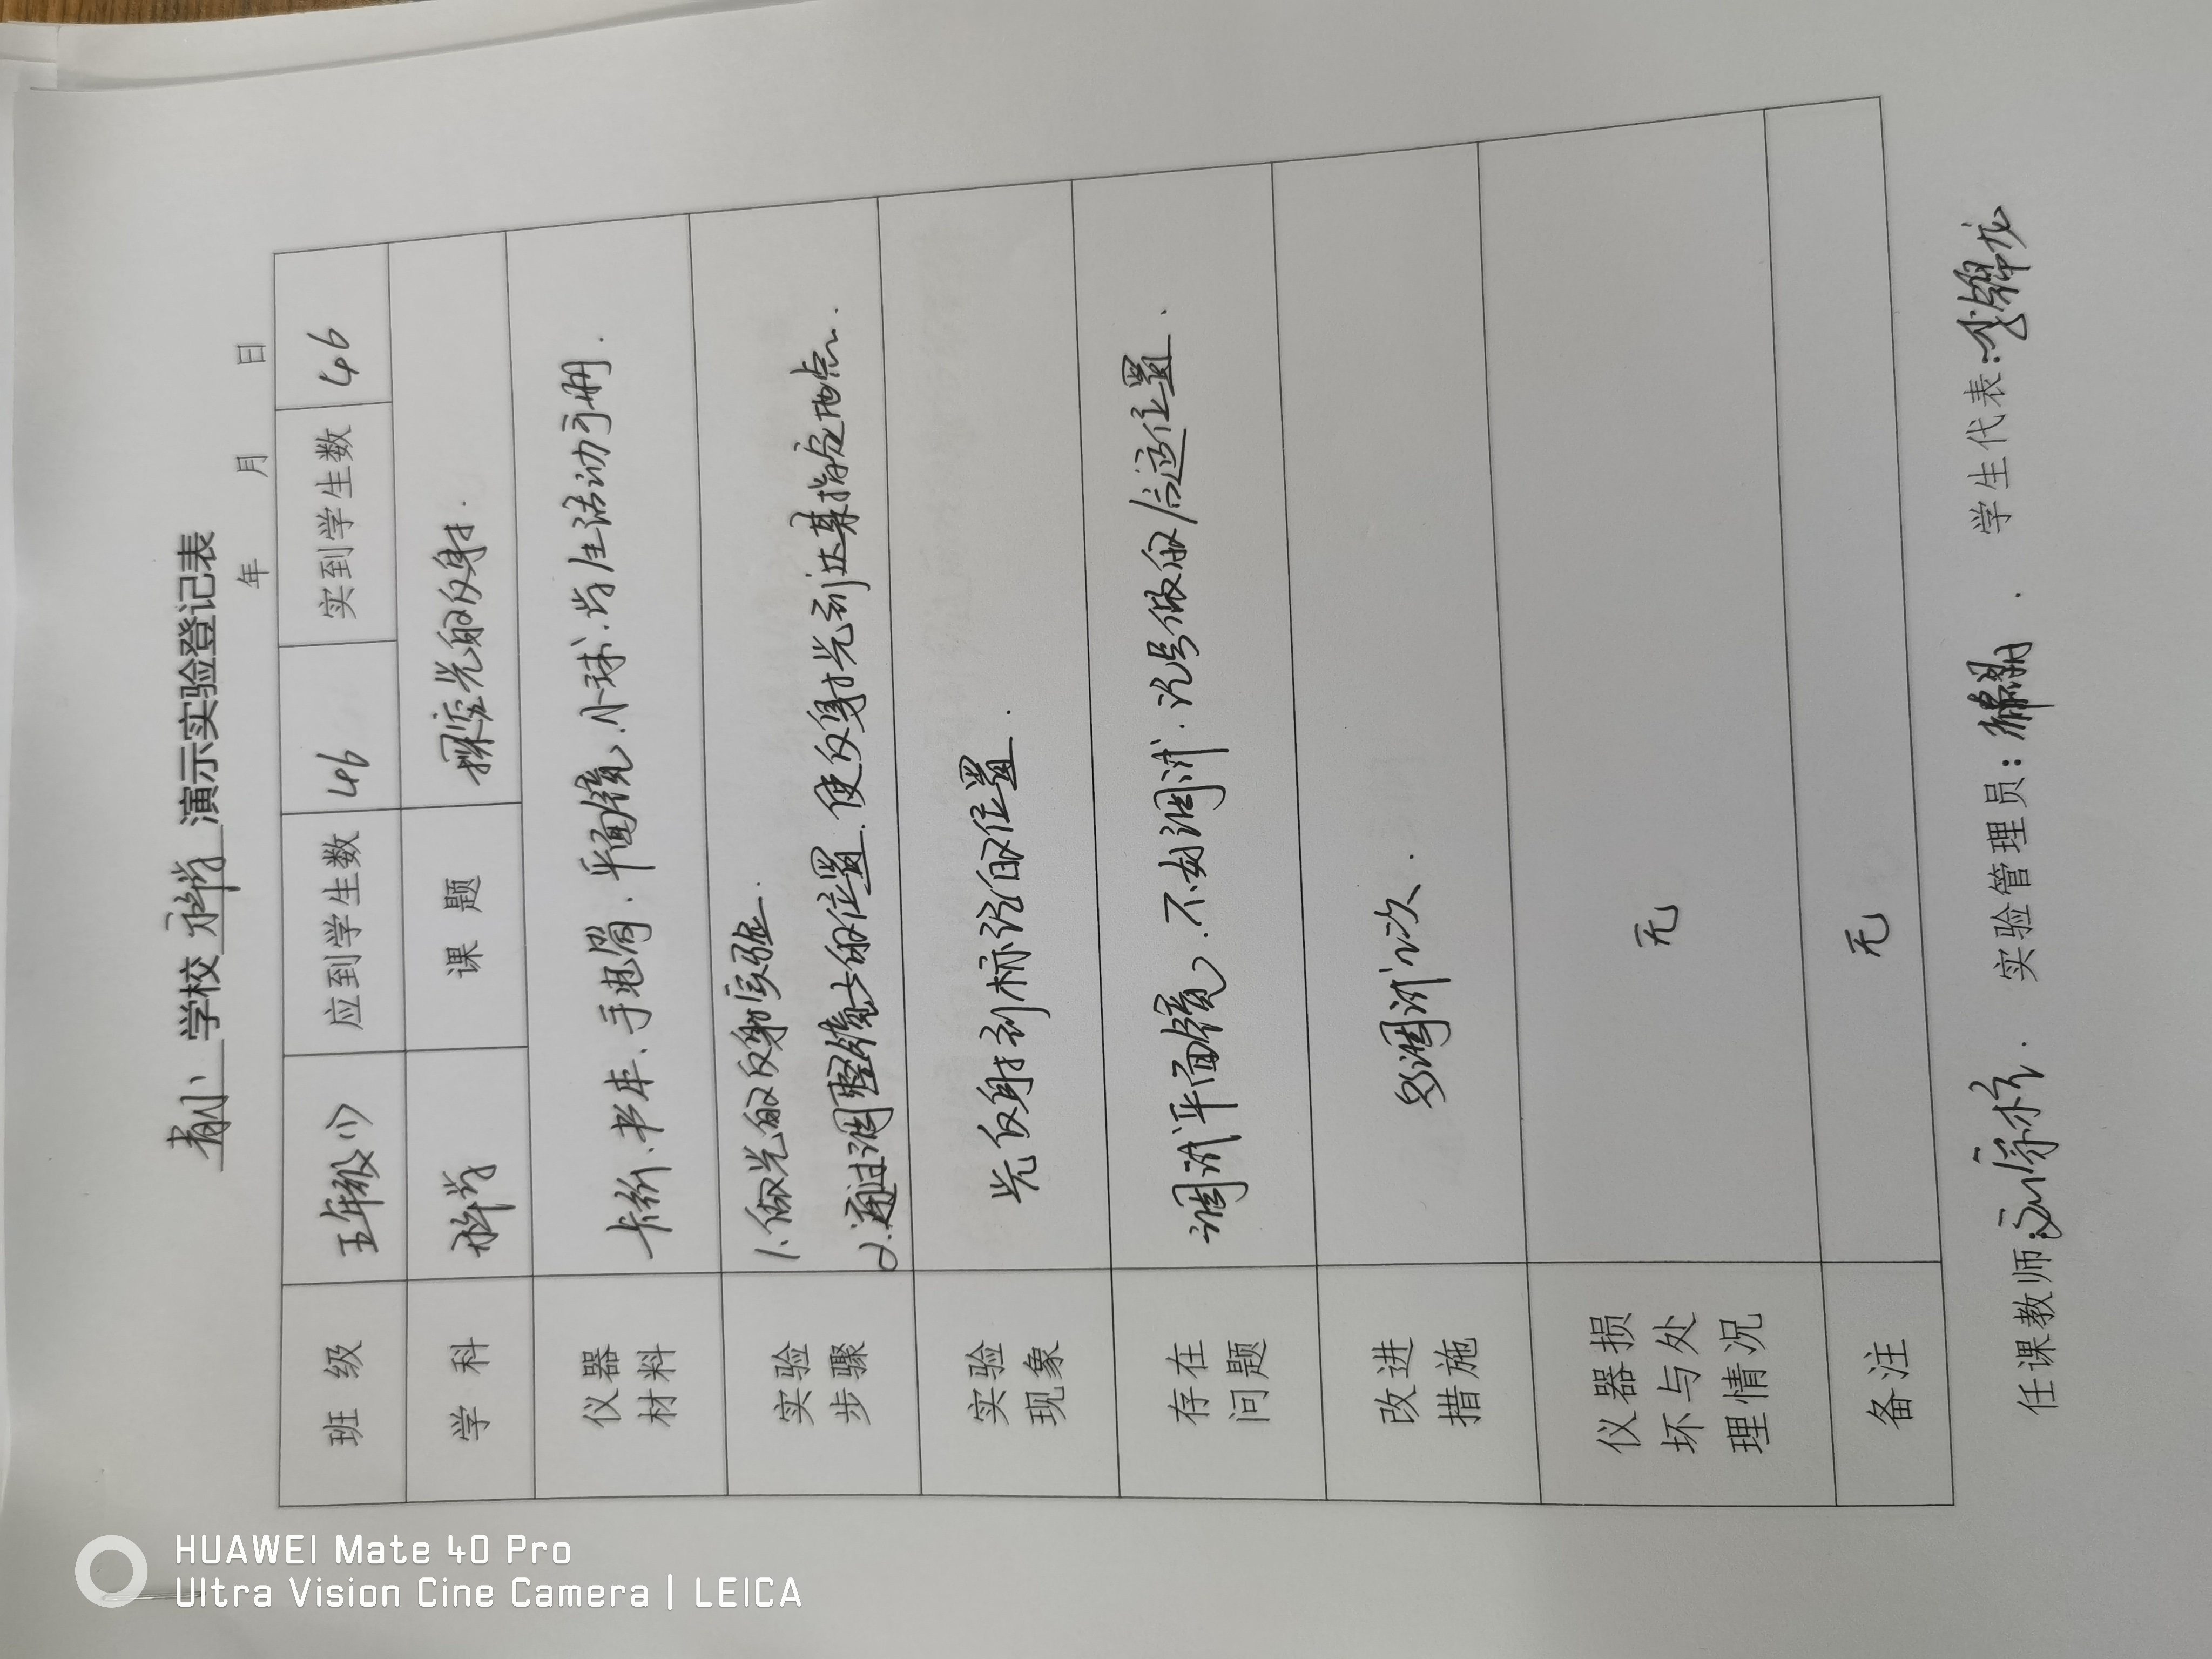 学校 科学 演示实验登记表
年 月 日
班 级 五年级(1) 应到学生数 46 实到学生数 46
学 科 科学 课 题 探究光的反射.
仪器材料 卡纸、书本、手电筒、平面镜、小球、学生活动手册.
实验步骤 1.做光的反射实验.
2.通过调整镜子的位置.使反射光到达某指定地点.
实验现象 光反射到标记的位置.
存在问题 调试平面镜,不好调试.记号做的合适位置.
改进措施 多调试几次.
仪器损坏与处理情况 无
备注 无
任课教师: 实验管理员: 学生代表:
HUAWEI Mate 40 Pro
Ultra Vision Cine Camera | LEICA